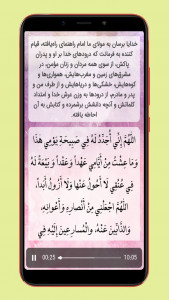 خدایا برسان به مولای ما امام راهنمای راه‌یافته، قیام
کننده به فرمانت که درودهای خدا بر او و پدران
پاکش، از سوی همه مردان و زنان مؤمن، در
مشرق‌های زمین و مغرب‌هایش، همواری‌ها و
کوه‌هایش، خشکی‌ها و دریاهایش و از طرف من
و پدر و مادرم، از درودها به وزن عرش خدا و امتداد
کلماتش و آنچه دانشش برشمرده و کتابش به آن
احاطه یافته.
اَللّٰهُمَّ إِنِّي أُجَدِّدُ لَهُ فِي صَبِيحَةِ يَوْمِي هٰذَا
وَمَا عِشْتُ مِنْ أَيَّامِي عَهْداً وَعَقْداً وَ بَيْعَةً لَهُ
فِي عُنُقِي لَا أَحُولُ عَنْها وَلَا أَزُولُ أَبَداً،
اَللّٰهُمَّ اجْعَلْنِي مِنْ أَنْصارِهِ وَأَعْوانِهِ،
وَالذَّابِّينَ عَنْهُ، وَالْمُسارِعِينَ إِلَيْهِ فِي
00:25 10:05